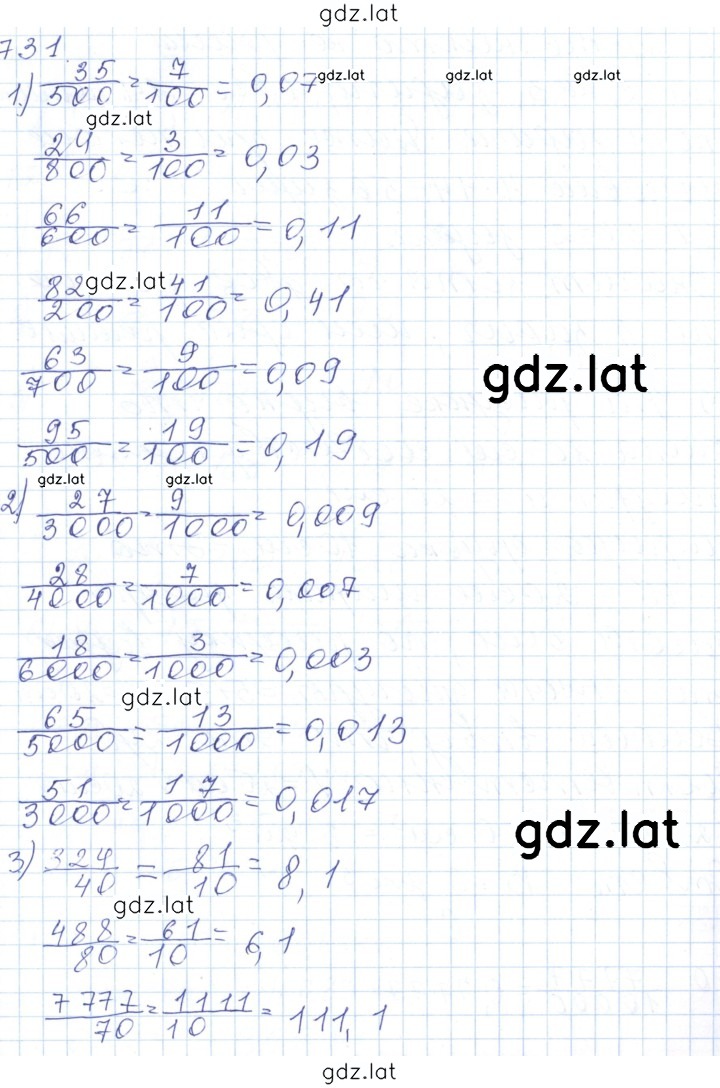 gdz.lat
731
1.) 35/500 = 7/100 = 0,07 gdz.lat gdz.lat gdz.lat
gdz.lat
24/800 = 3/100 = 0,03
66/600 = 11/100 = 0,11
gdz.lat
82/200 = 41/100 = 0,41
63/700 = 9/100 = 0,09
gdz.lat
95/500 = 19/100 = 0,19
gdz.lat gdz.lat
2) 27/3000 = 9/1000 = 0,009
28/4000 = 7/1000 = 0,007
18/6000 = 3/1000 = 0,003
gdz.lat
65/5000 = 13/1000 = 0,013
51/3000 = 17/1000 = 0,017
gdz.lat
3) 324/40 = 81/10 = 8,1
gdz.lat
488/80 = 61/10 = 6,1
7777/70 = 1111/10 = 111,1
gdz.lat